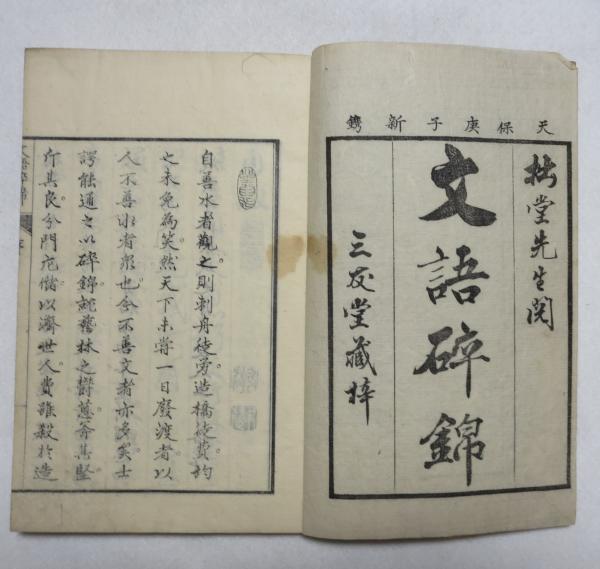 天保庚子新鐫
拙堂先生閲
文語碎錦
三友堂藏梓
自善水者觀之則刺舟徒勞造橋徒費均
之未免為笑然天下未嘗一日廢渡者以
人不善水者衆也今不善文者亦多矣士
諤能通之以碎錦藝林之鬱蔥斧其堅
其良分門庀儲以濟世人費雖殺於造